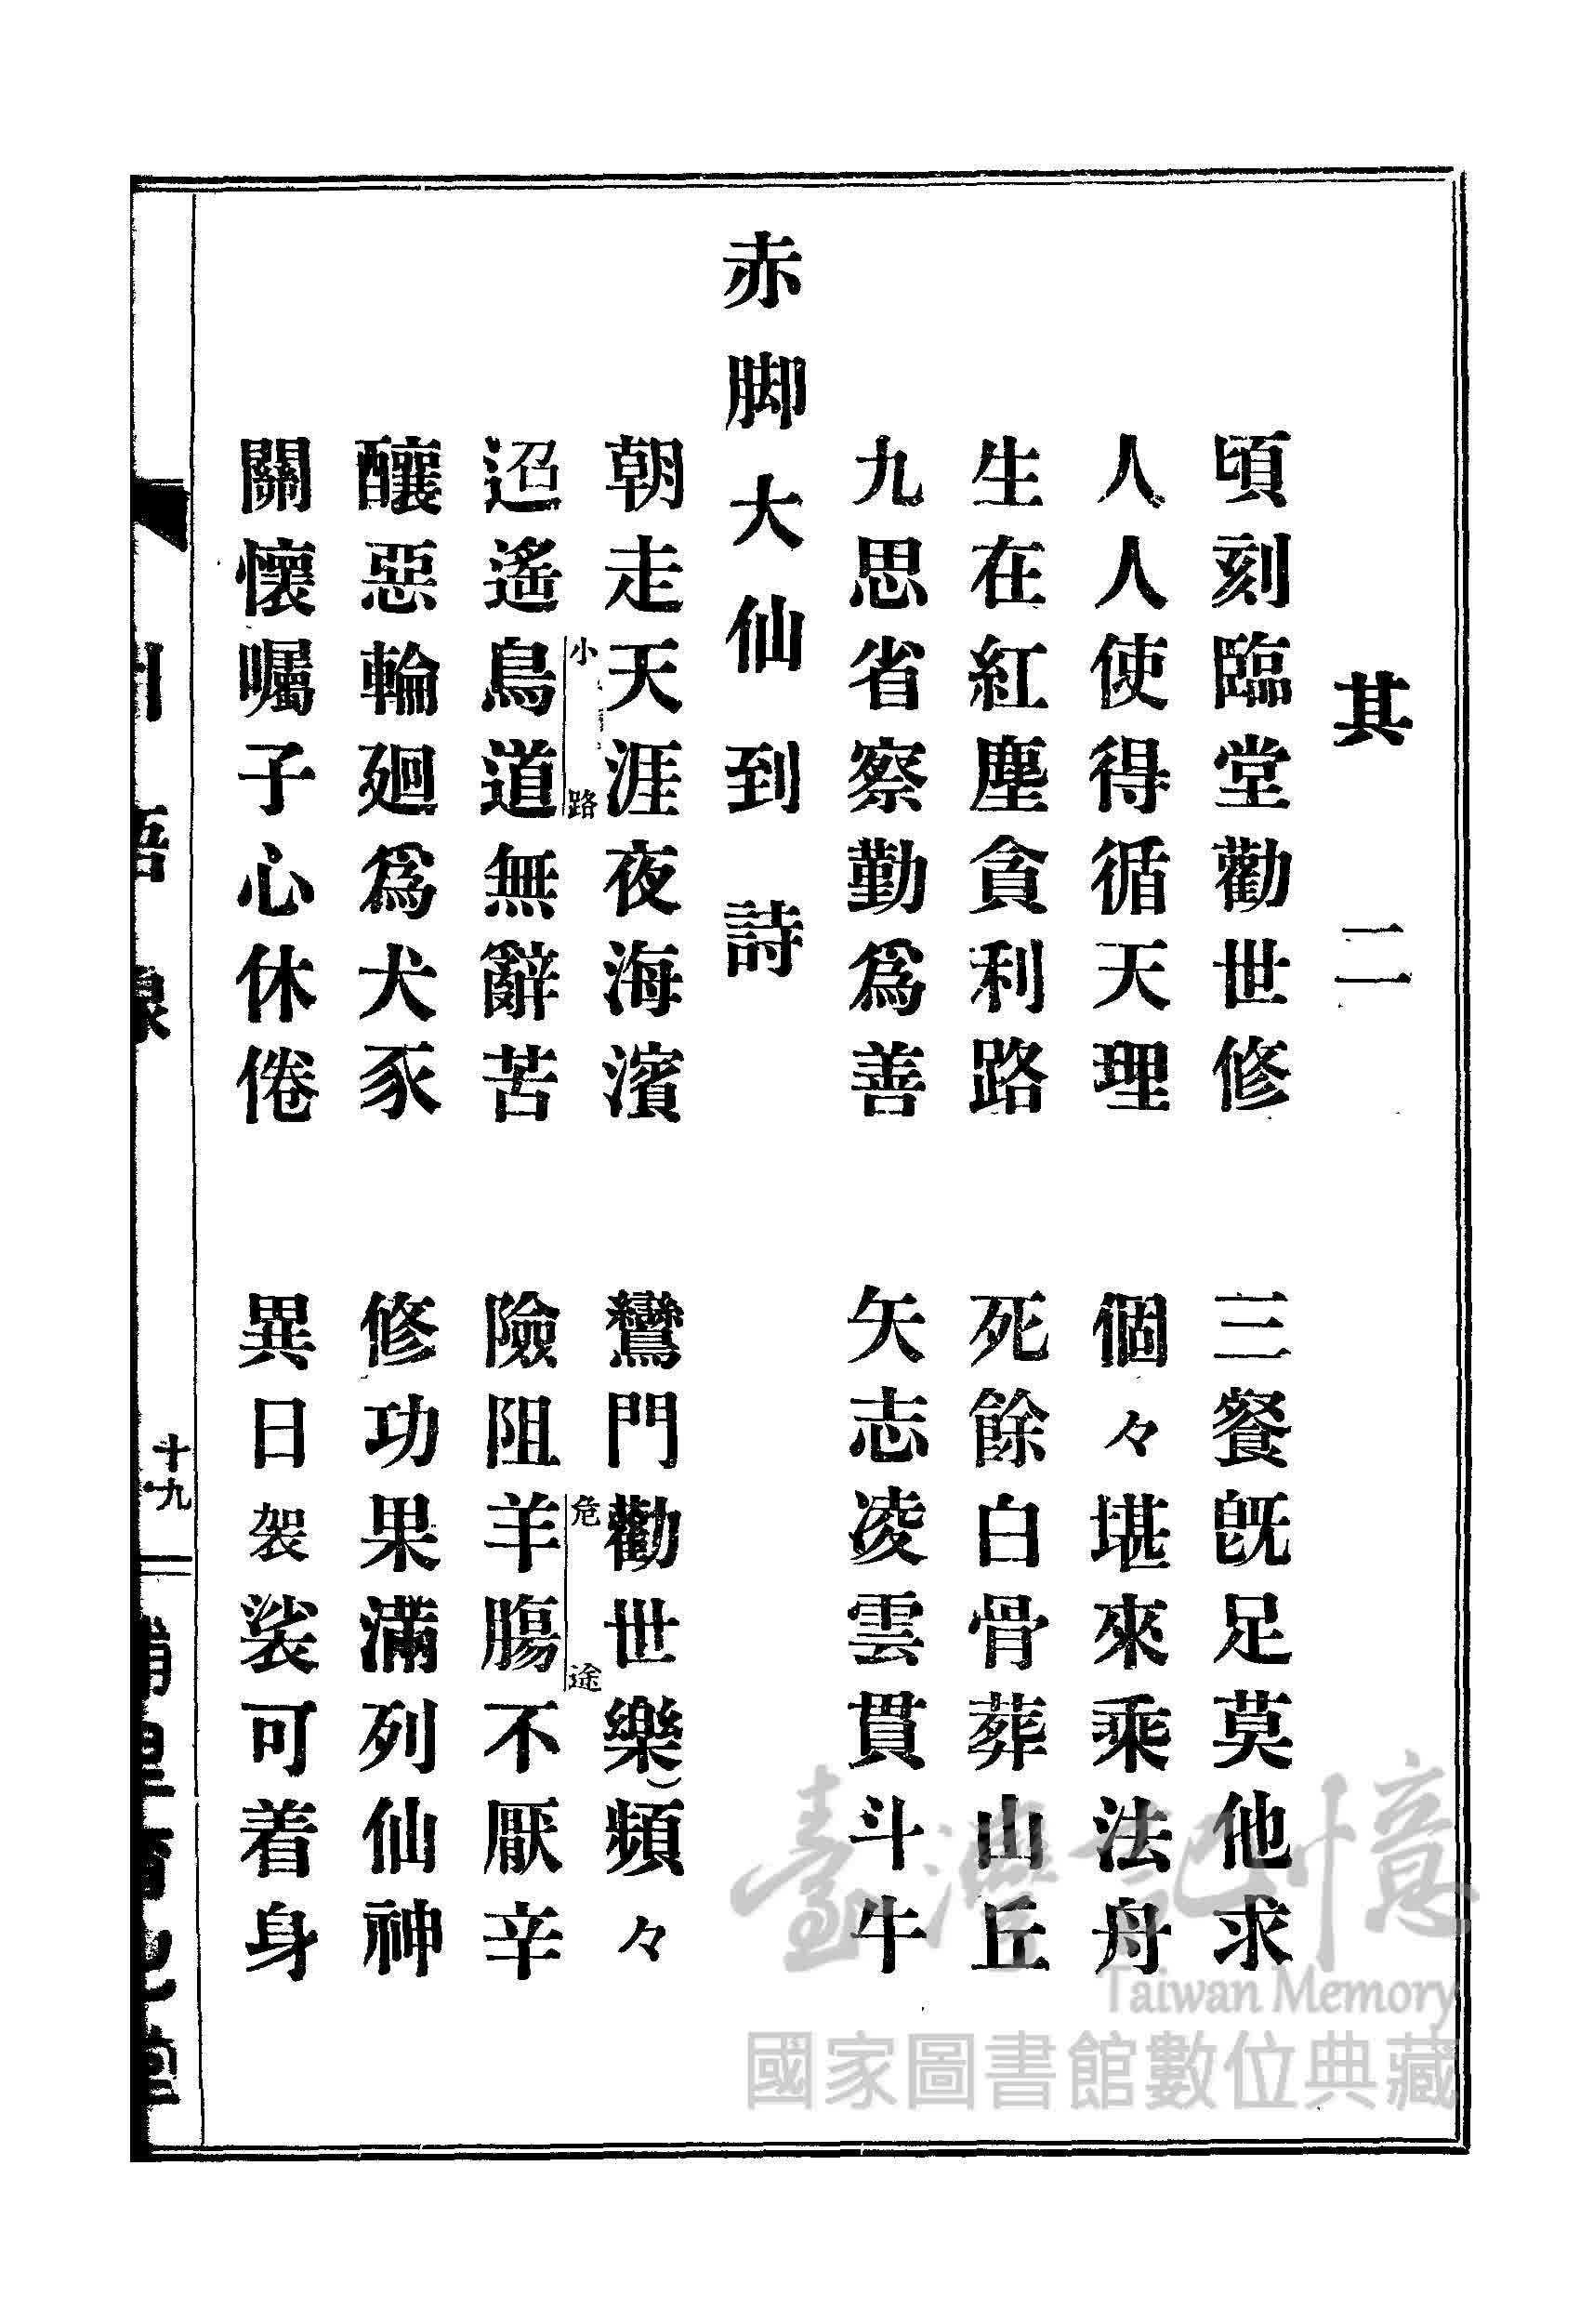 其二
頃刻臨堂勸世修　三餐旣足莫他求
人人使得循天理　個々堪來乘法舟
生在紅塵貪利路　死餘白骨葬山丘
九思省察勤爲善　矢志凌雲貫斗牛
赤脚大仙到　詩
朝走天涯夜海濱　鸞門勸世樂頻々
迢遙鳥道無辭苦　險阻羊腸不厭辛
小路　危途
釀惡輪廻爲犬豕　修功果滿列仙神
關懷囑子心休倦　異日袈裟可着身
十九
臺灣記憶
Taiwan Memory
國家圖書館數位典藏